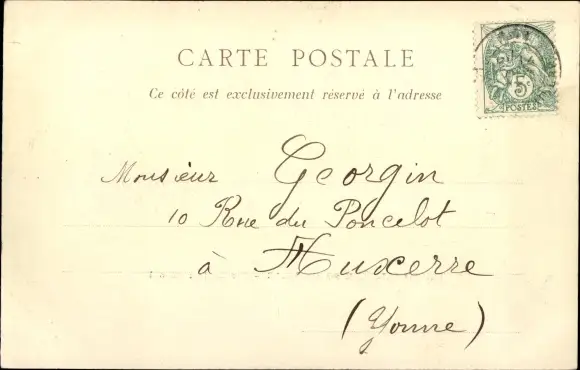 CARTE POSTALE
Ce côté est exclusivement réservé à l'adresse
5
POSTES
Monsieur Georgin
10 Rue du Poncelot
à Auxerre
(Yonne)